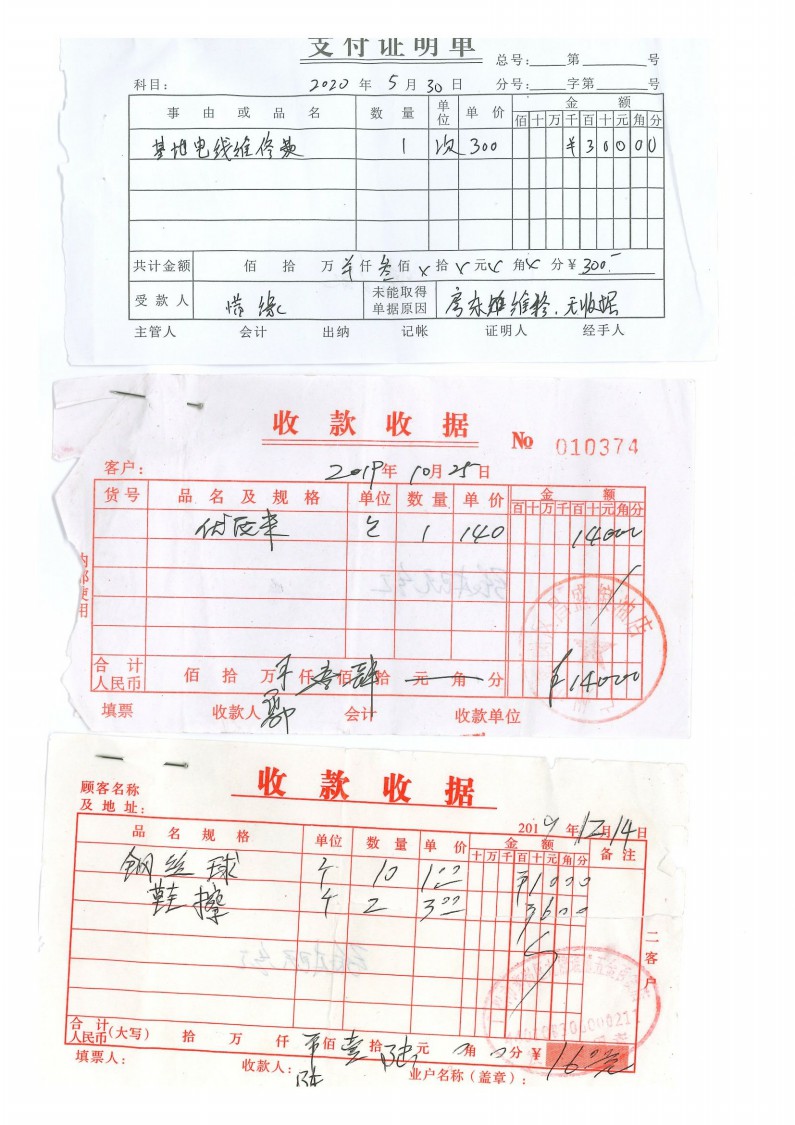 支付证明单
总号:____第____号
科目: 2020 年 5 月 30 日 分号:____字第____号
事由或品名 数量 单位 单价 金额
佰十万千百十元角分
基地电线维修款 1 次 300 ¥30000
共计金额 佰 拾 万 仟 叁佰 拾 元 角 分¥ 300.-
受款人 惜缘 未能取得单据原因 房东 维修,无收据
主管人 会计 出纳 记帐 证明人 经手人
收款收据 № 010374
客户: 2019年 10月 25日
货号 品名及规格 单位 数量 单价 金额
百十万千百十元角分
1 140 14000
内部使用
合计人民币 佰 拾 万 仟 壹佰 肆拾 元 角 分 ¥14000
填票 收款人 会计 收款单位
收款收据
顾客名称
及地址:
2019 年 12 月 14 日
品名规格 单位 数量 单价 金额 备注
十万千百十元角分
钢丝球 个 10 1.00 ¥1000
鞋擦 个 2 3.00 ¥600
二客户
合计人民币(大写) 拾 万 仟 佰 壹拾 陆元 角 分 ¥ 16元
填票人: 收款人: 业户名称(盖章):